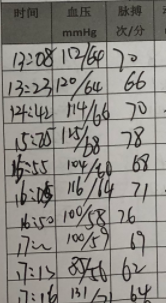 时间 血压 mmHg 脉搏 次/分
13:08 112/64 70
13:23 120/64 66
14:42 114/66 70
15:25 115/68 78
15:55 104/60 68
116/64 71
16:50 100/58 76
17: 100/59 69
17:15 85/56 62
17:16 131/71 64